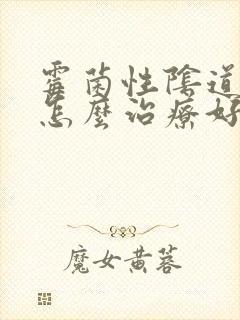 霉菌性陰道
怎麼治療好
魔女黄蓉